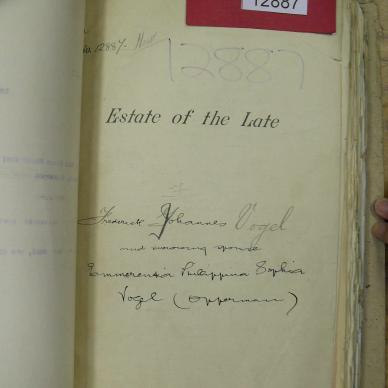 12887
No. 12887.
12887
Estate of the Late
Frederick Johannes Vogel
and surviving spouse
Emmerentia Philippina Sophia
Vogel (Opperman)